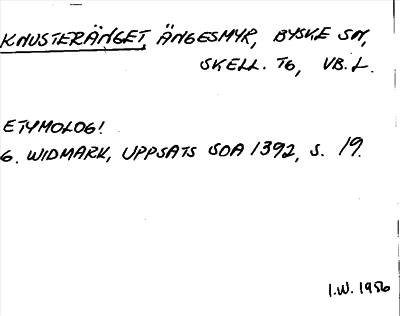 KNUSTERÄNGET, ÄNGESMYR, BYSKE SN,
SKELL. TG, VB. L.
ETYMOLOG!
G. WIDMARK, UPPSATS SOA 1392, S. 19.
I.W. 1956